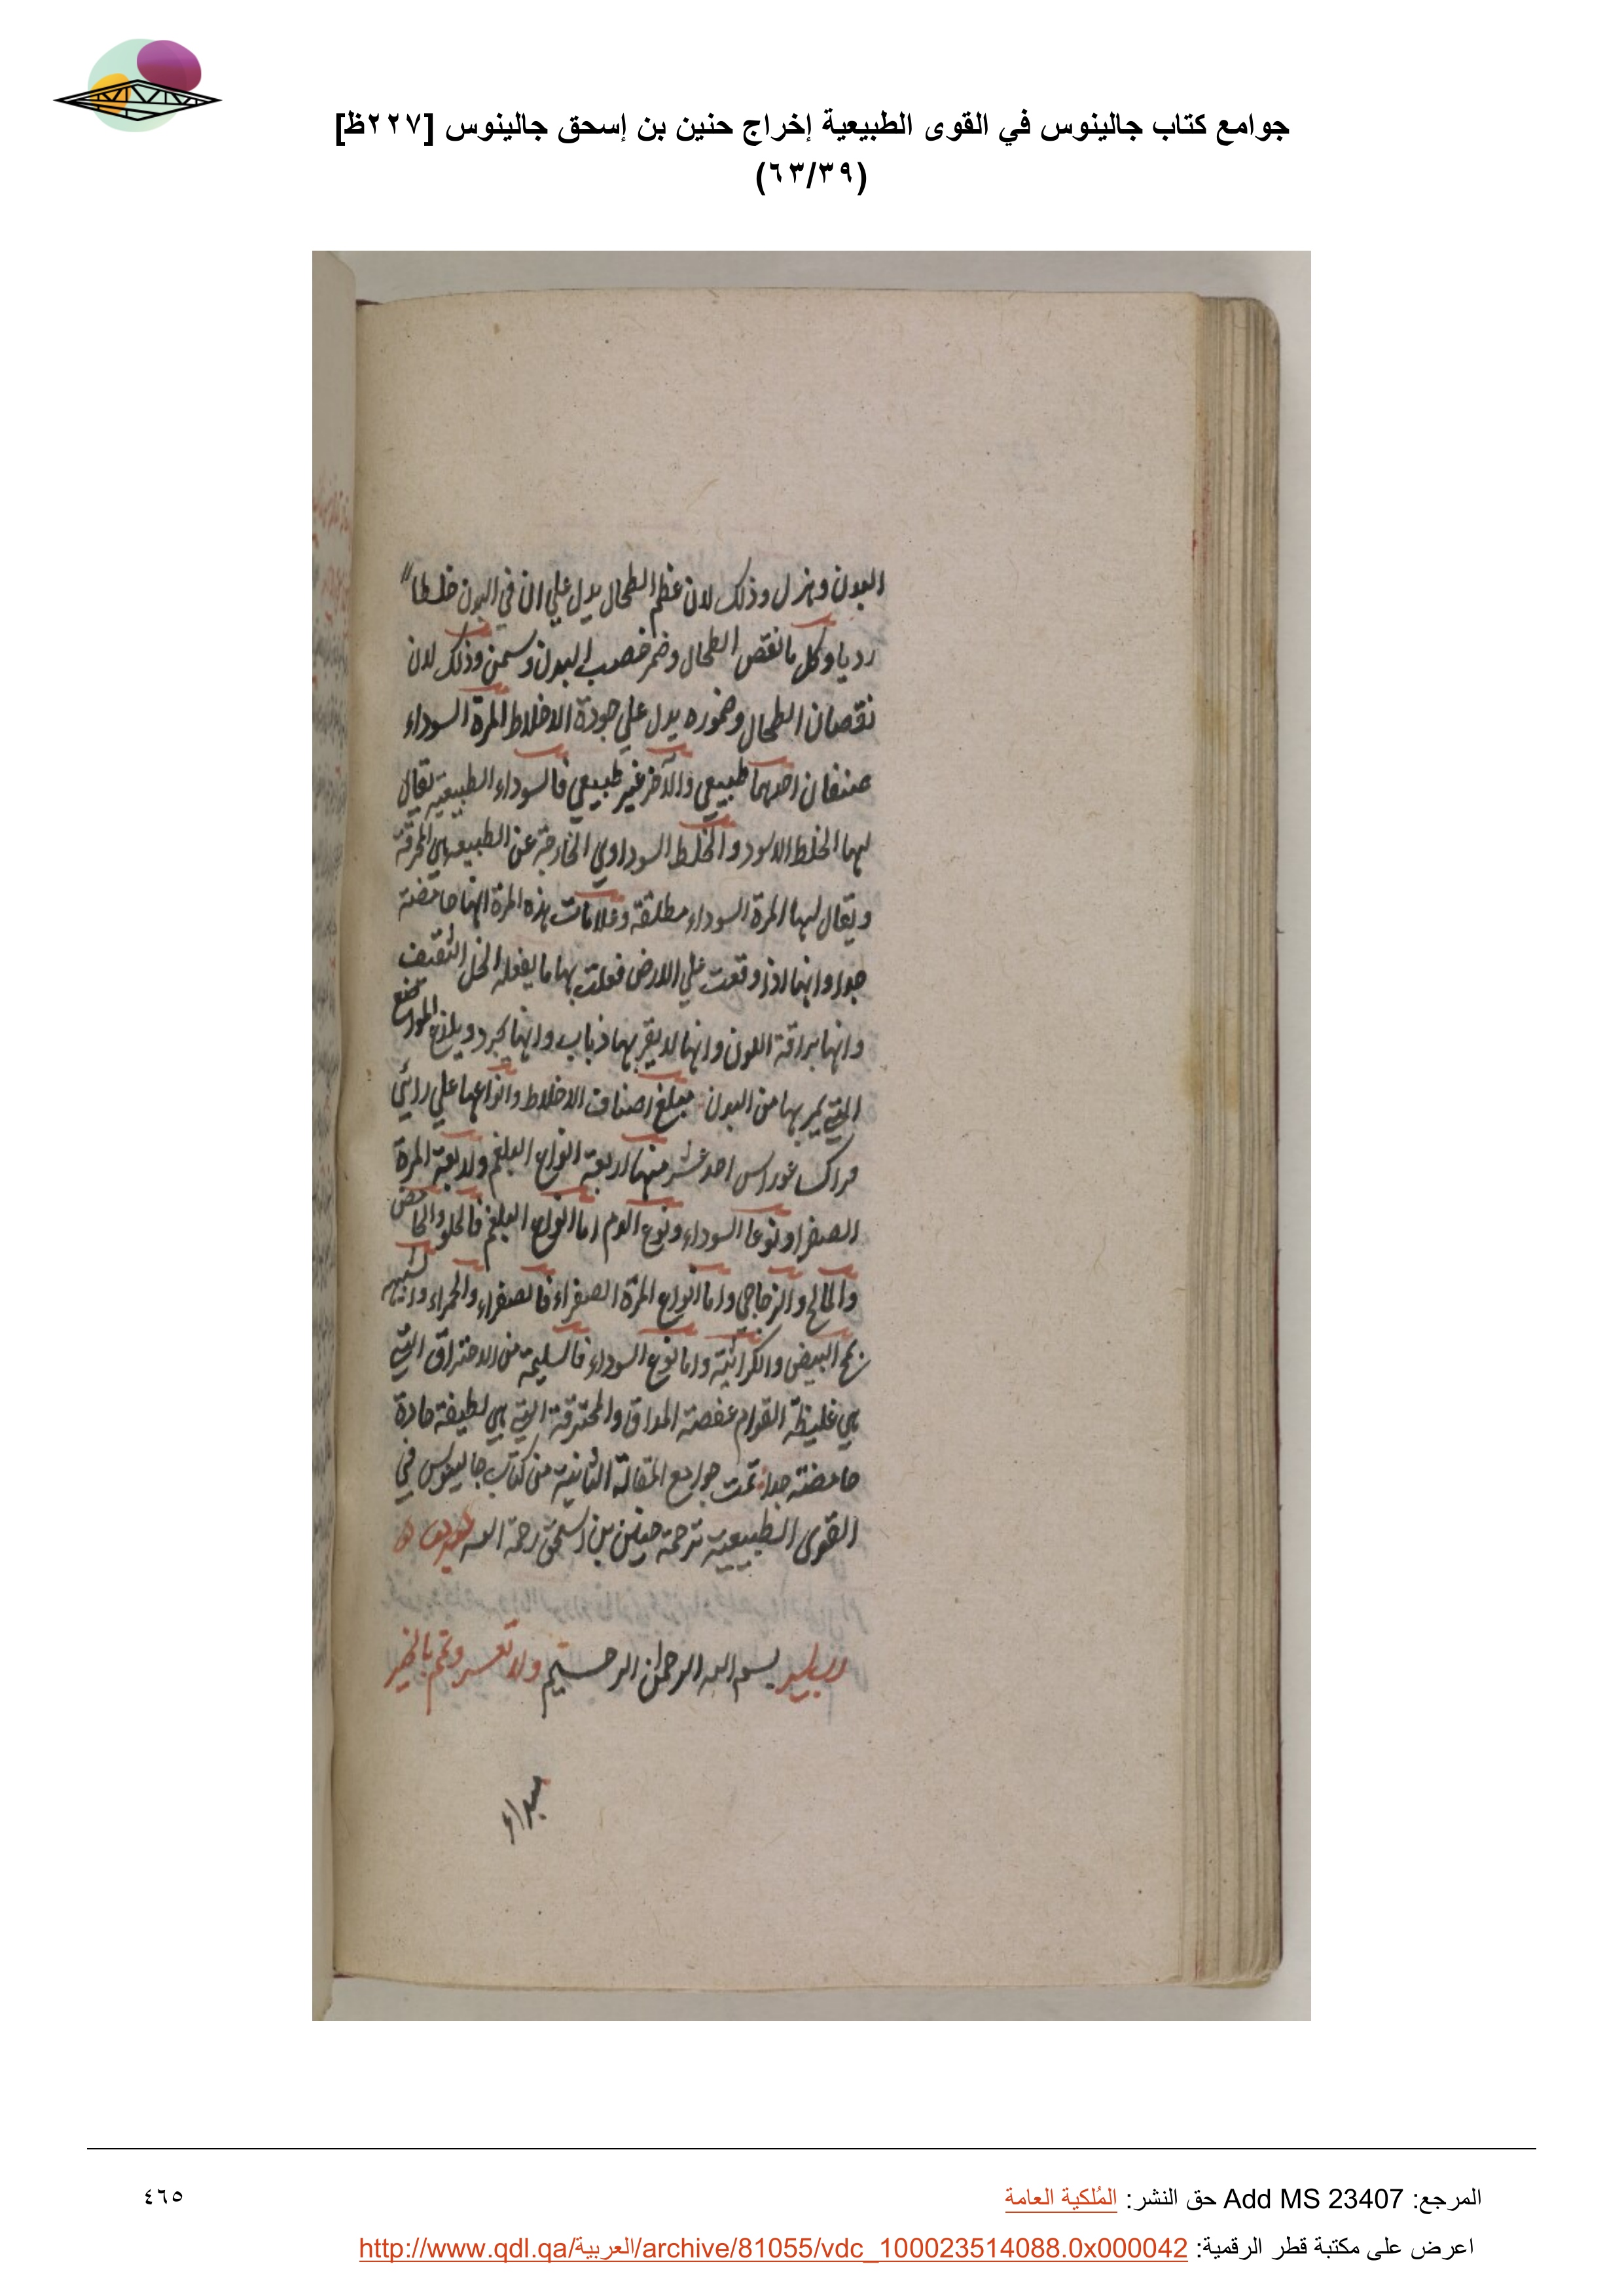 جوامع كتاب جالينوس في القوى الطبيعية إخراج حنين بن إسحق جالينوس [٢٢٧ظ]
(٦٣/٣٩)
البدن وهزل وذلك لان عظم الطحال يدل علي ان في البدن خلطا
رديا وكل ما نقص الطحال وضمر خصب البدن وسمن وذلك لان
نقصان الطحال وضموره يدل علي جودة الاخلاط المرة السوداء
صنفان احدهما طبيعي والآخر غير طبيعي فالسوداء الطبيعية يقال
لها الخلط الاسود والخلط السوداوي الخارجة عن الطبيعه هي المحرقة
ويقال لها المرة السوداء مطلقة وعلامات هذه المرة انها حامضة
جدا وانها اذا وقعت علي الارض فعلت بها ما يفعله الخل الثقيف
وانها براقة اللون وانها لا يقربها ذباب وانها تجرد ويلذع المواضع
التي يمر بها من البدن مبلغ اصناف الاخلاط وانواعها علي رائي
احد عشر منها اربعة انواع البلغم واربعة المرة
الصفرا ونوعا السوداء ونوع الدم اما انواع البلغم فالحلو والحامض
والمالح والزجاجي واما انواع المرة الصفراء فالصفراء والحمراء والشبيه
بمح البيض والكراثية واما نوع السوداء فالسليمة من الاحتراق التي
هي غليظة القوام عفصة المذاق والمحترقة التي هي لطيفة حادة
حامضة جدا تمت جوامع المقالة الثانية من كتاب جالينوس في
القوى الطبيعية ترجمة حنين بن اسحق رحمة الله
رب يسر بسم الله الرحمن الرحيم ولا تعسر وتمم بالخير
المرجع: Add MS 23407 حق النشر: المُلكية العامة
٤٦٥
اعرض على مكتبة قطر الرقمية: http://www.qdl.qa/العربية/archive/81055/vdc_100023514088.0x000042